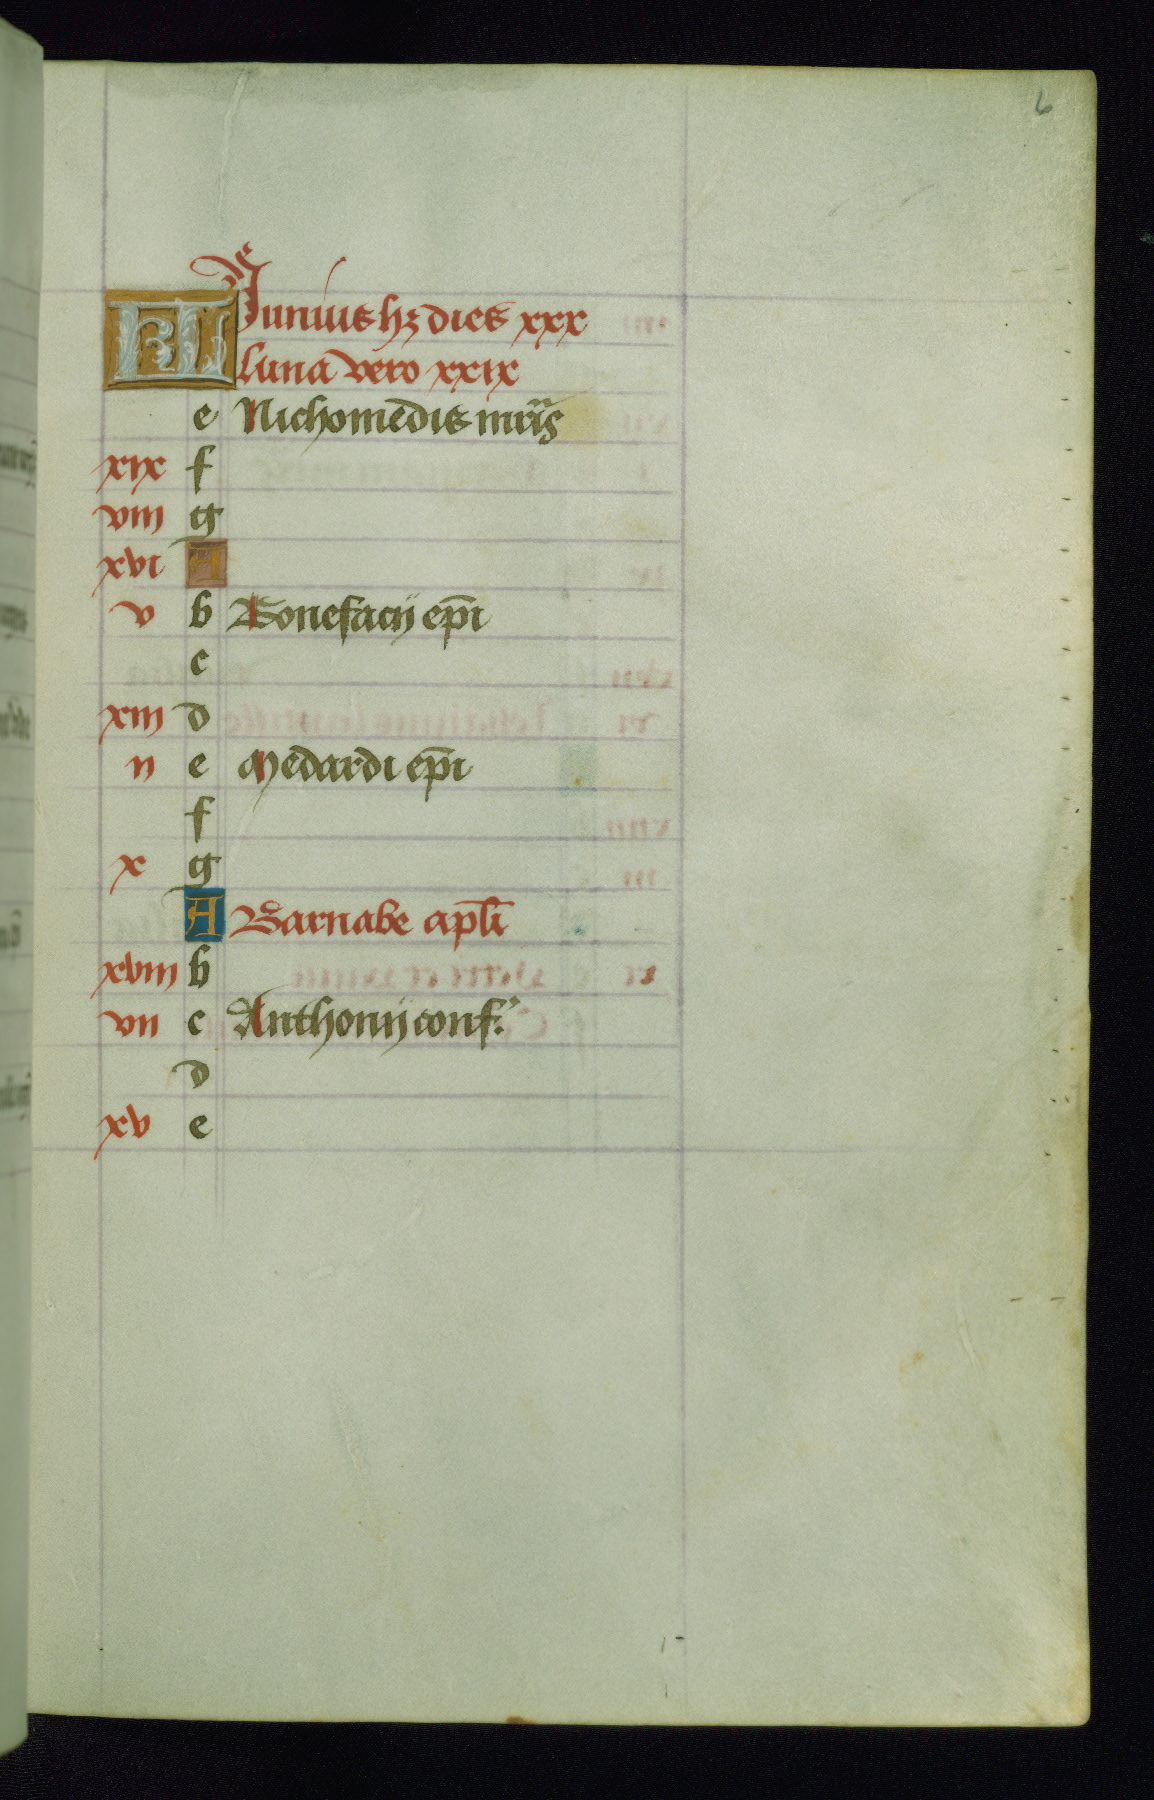 6
KL Junius hꝫ dies xxx
Luna vero xxix
e Nichomedis mr̄is
xix f
viii g
xvi A
v b Bonefacij ep̄i
c
xiii d
ii e Medardi ep̄i
f
x g
A Barnabe apl̄i
xviii b
vii c Anthonij conf.
d
xv e